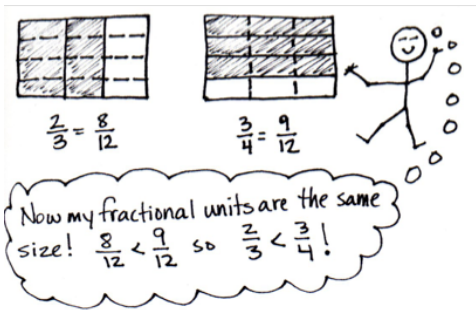 2/3 = 8/12
3/4 = 9/12
Now my fractional units are the same
size! 8/12 < 9/12 so 2/3 < 3/4!